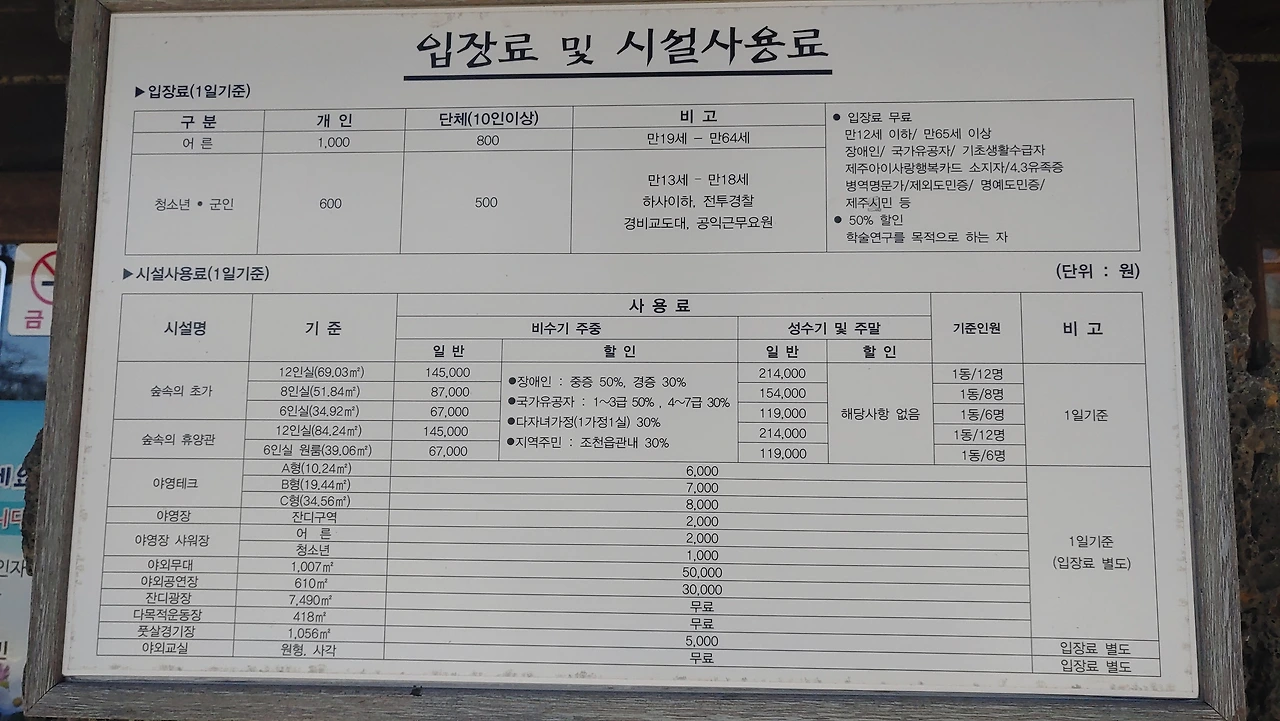 입장료 및 시설사용료
▶입장료(1일기준)
구 분 개 인 단체(10인이상) 비 고
어 른 1,000 800 만19세 - 만64세
청소년 • 군인 600 500 만13세 - 만18세
하사이하, 전투경찰
경비교도대, 공익근무요원
● 입장료 무료
만12세 이하/ 만65세 이상
장애인/ 국가유공자/ 기초생활수급자
제주아이사랑행복카드 소지자/4.3유족증
병역명문가/제외도민증/ 명예도민증/
제주시민 등
● 50% 할인
학술연구를 목적으로 하는 자
▶시설사용료(1일기준) (단위 : 원)
시설명 기 준 사 용 료 기준인원 비 고
비수기 주중 성수기 및 주말
일 반 할 인 일 반 할 인
숲속의 초가 12인실(69.03㎡) 145,000 214,000 1동/12명
8인실(51.84㎡) 87,000 154,000 1동/8명
6인실(34.92㎡) 67,000 119,000 1동/6명
숲속의 휴양관 12인실(84.24㎡) 145,000 214,000 1동/12명
6인실 원룸(39.06㎡) 67,000 119,000 1동/6명
●장애인 : 중증 50%, 경증 30%
●국가유공자 : 1~3급 50% , 4~7급 30%
●다자녀가정(1가정1실) 30%
●지역주민 : 조천읍관내 30%
해당사항 없음
1일기준
야영테크 A형(10.24㎡) 6,000
B형(19.44㎡) 7,000
C형(34.56㎡) 8,000
야영장 잔디구역 2,000
야영장 샤워장 어 른 2,000
청소년 1,000
야외무대 1,007㎡ 50,000
야외공연장 610㎡ 30,000
잔디광장 7,490㎡ 무료
다목적운동장 418㎡ 무료
풋살경기장 1,056㎡ 5,000 입장료 별도
야외교실 원형, 사각 무료 입장료 별도
1일기준
(입장료 별도)
금